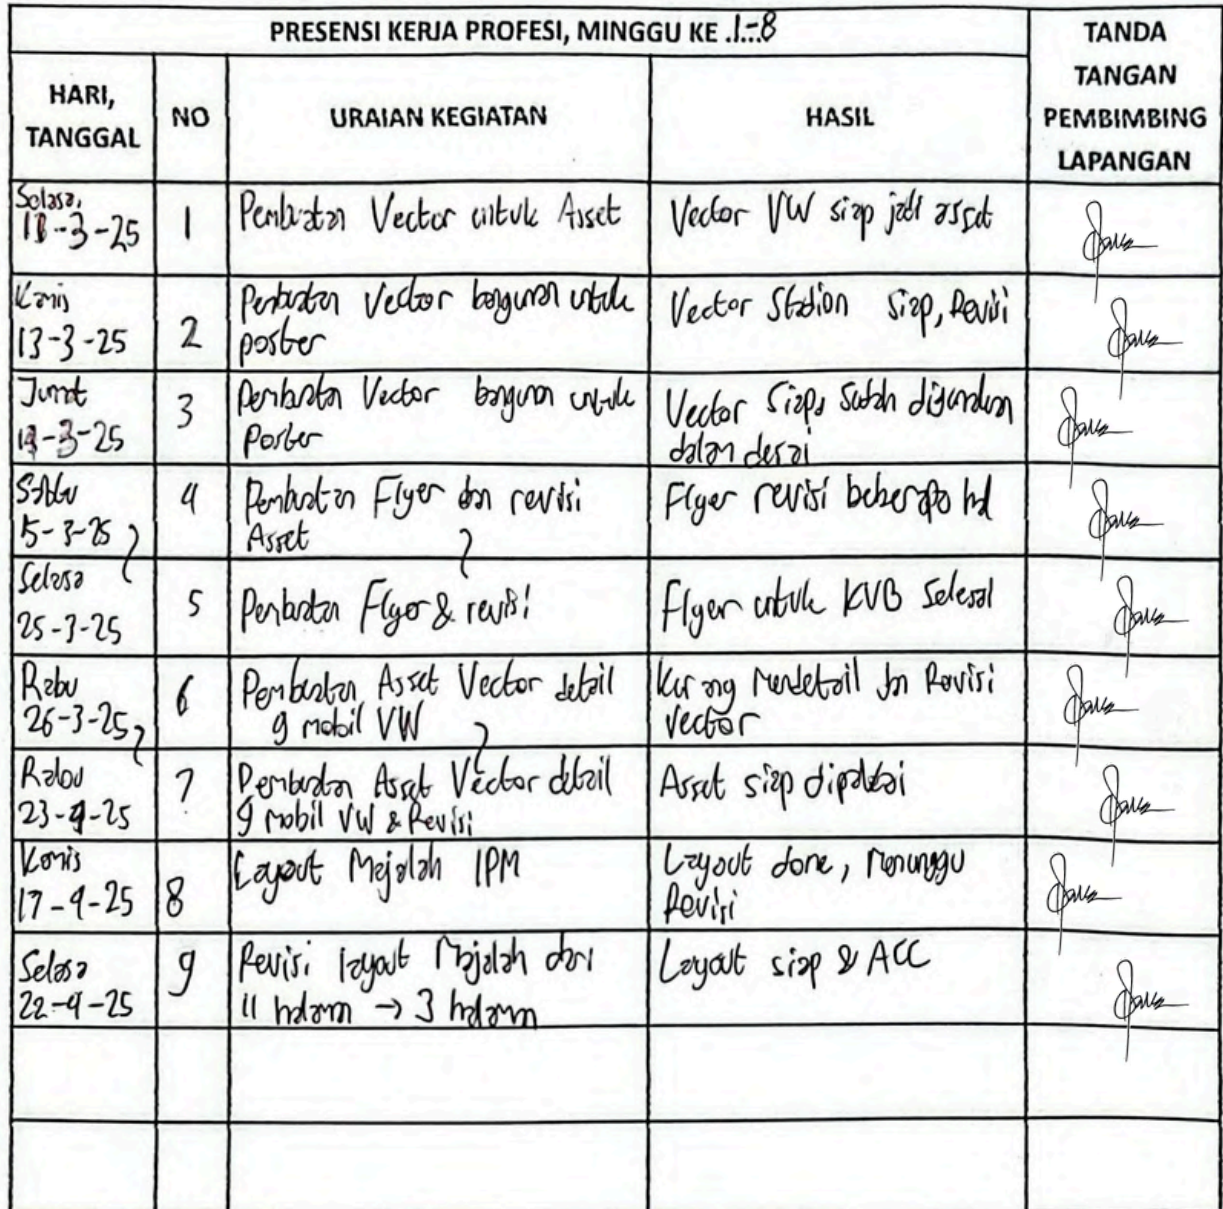 PRESENSI KERJA PROFESI, MINGGU KE .1-8
TANDA
TANGAN
PEMBIMBING
LAPANGAN
HARI,
TANGGAL
NO
URAIAN KEGIATAN
HASIL
Selasa,
-3-25
1
Pembuatan Vector untuk Asset
Vector VW siap jadi asset
Kamis
13-3-25
2
Pembuatan Vector bangunan untuk
poster
Vector Stadion siap, Revisi
Jumat
14-3-25
3
Pembuatan Vector bangunan untuk
Poster
Vector Siap, Sudah digunakan
dalam desai
Sabtu
15-3-25
4
Pembuatan Flyer dan revisi
Asset
Flyer revisi beberapa hal
Selasa
25-3-25
5
Pembuatan Flyer & revisi
Flyer untuk KVB Selesai
Rabu
26-3-25
6
Pembuatan Asset Vector detail
9 mobil VW
Kurang Mendetail dan Revisi
vector
Rabu
23-4-25
7
Pembuatan Asset Vector detail
9 mobil VW & Revisi
Asset siap dipakai
Kamis
17-4-25
8
Layout Majalah IPM
Layout done, Menunggu
Revisi
Selasa
22-4-25
9
Revisi layout Majalah dari
11 halaman → 3 halaman
Layout siap & ACC